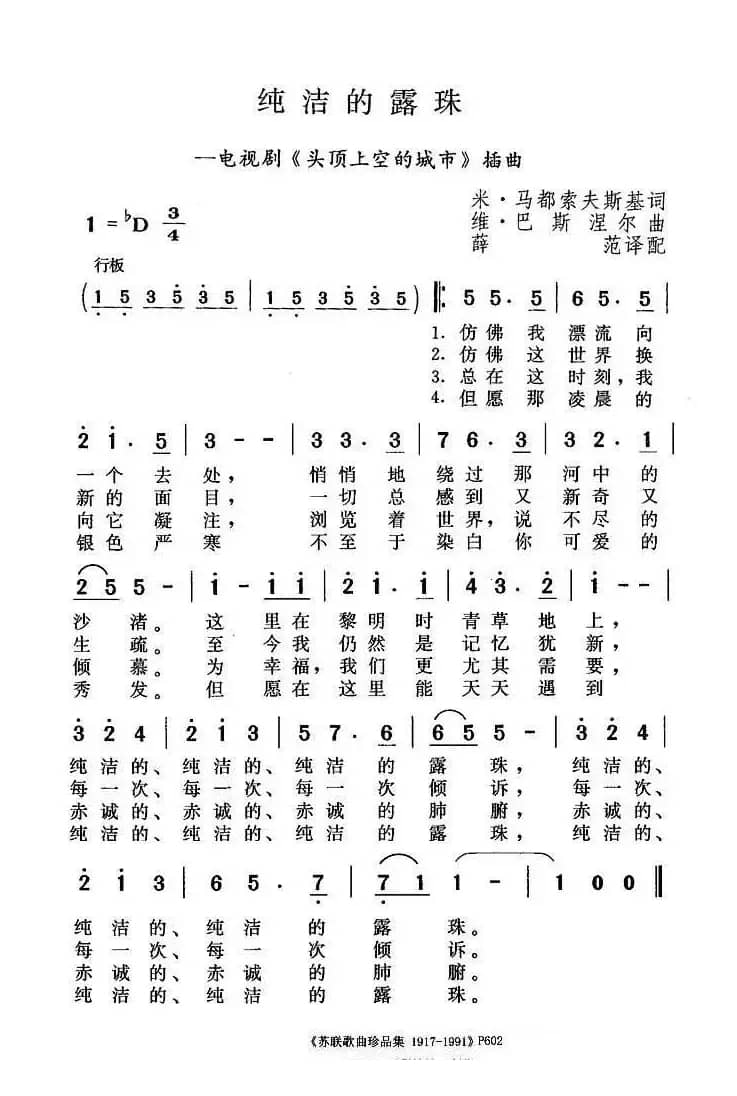 纯洁的露珠
—电视剧《头顶上空的城市》插曲
米·马都索夫斯基词
1=♭D 3/4
维·巴斯涅尔曲
薛范译配
行板
(1 5 3 5 3 5 | 1 5 3 5 3 5) ‖: 5 5 · 5 | 6 5 · 5 |
1. 仿佛我漂流向
2. 仿佛这世界换
3. 总在这时刻，我
4. 但愿那凌晨的
2 1 · 5 | 3 - - | 3 3 · 3 | 7 6 · 3 | 3 2 · 1 |
一个去处， 悄悄地绕过那河中的
新的面目， 一切总感到又新奇又
向它凝注， 浏览着世界，说不尽的
银色严寒 不至于染白你可爱的
2 5 5 - | 1 - 1 1 | 1 1 · 1 | 2 1 · 1 | 4 3 · 2 | 1 - - |
沙渚。这里在黎明时青草地上，
生疏。至今我仍然是记忆犹新，
倾慕。为幸福，我们更尤其需要，
秀发。但愿在这里能天天遇到
3 2 4 | 2 1 3 | 5 7 · 6 | 6 5 5 - | 3 2 4 |
纯洁的、纯洁的、纯洁的露珠，纯洁的、
每一次、每一次、每一次倾诉，每一次、
赤诚的、赤诚的、赤诚的肺腑，赤诚的、
纯洁的、纯洁的、纯洁的露珠，纯洁的、
2 1 3 | 6 5 · 7 | 7 1 1 - | 1 0 0 ‖
纯洁的、纯洁的露珠。
每一次、每一次倾诉。
赤诚的、赤诚的肺腑。
纯洁的、纯洁的露珠。
《苏联歌曲珍品集 1917-1991》P602